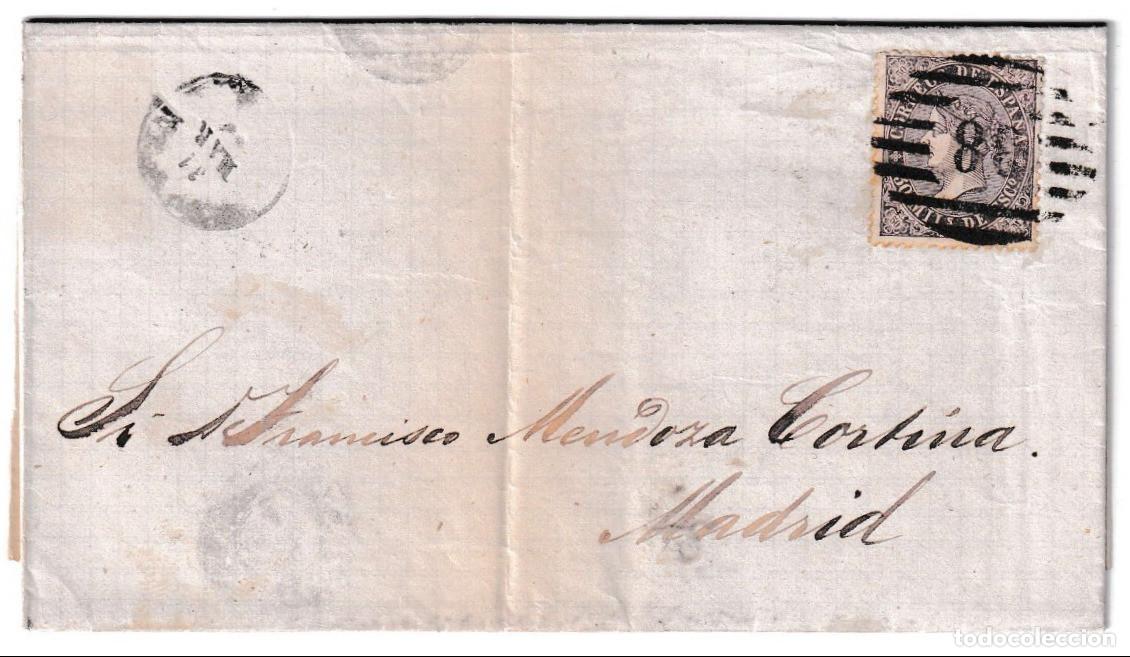 11
MAR
CORREOS DE ESPAÑA
50 MILS DE ESCO
8
Sr. Dn. Francisco Mendoza Cortina.
Madrid
todocoleccion